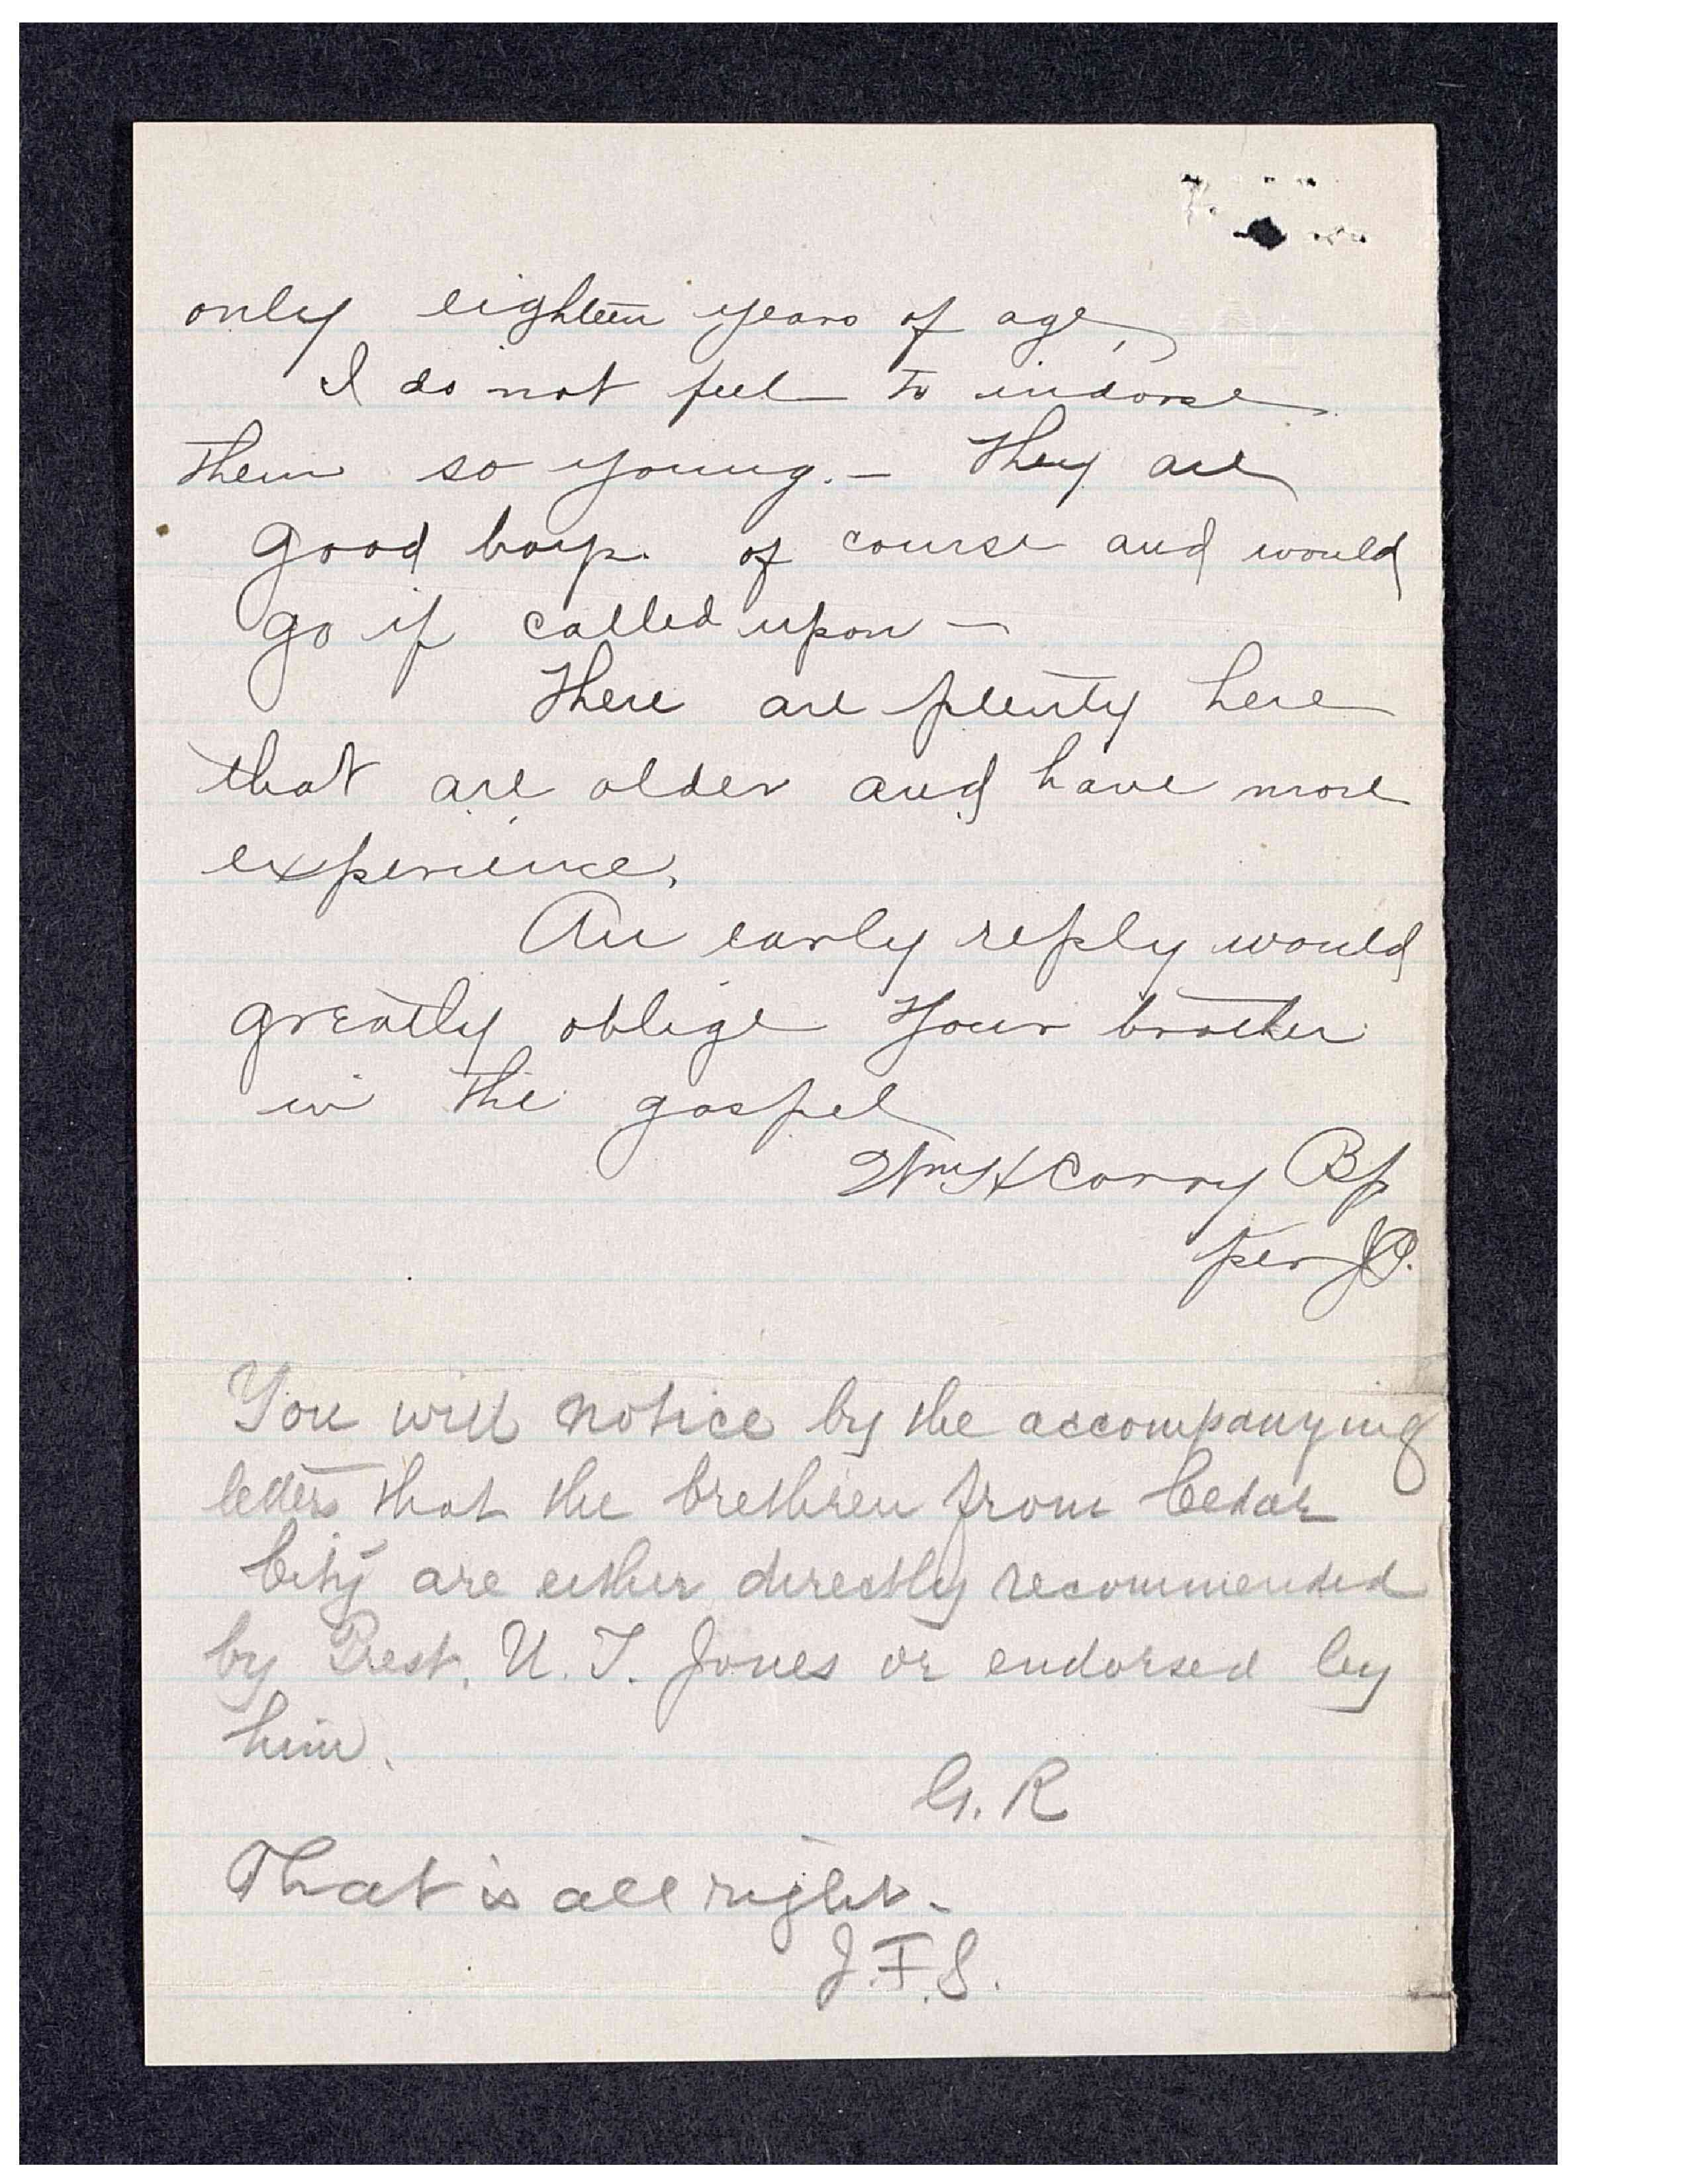 only eighteen years of age,
I do not feel to indorse
them so young. - They are
good boys of course and would
go if called upon -
There are plenty here
that are older and have more
experience.
An early reply would
greatly oblige Your brother
in the gospel
Wm H Corry Bp
per
You will notice by the accompanying
letters that the brethren from Cedar
City are either directly recommended
by Prest. U. T. Jones or endorsed by
him.
G. R
That is all right.
J.F.S.